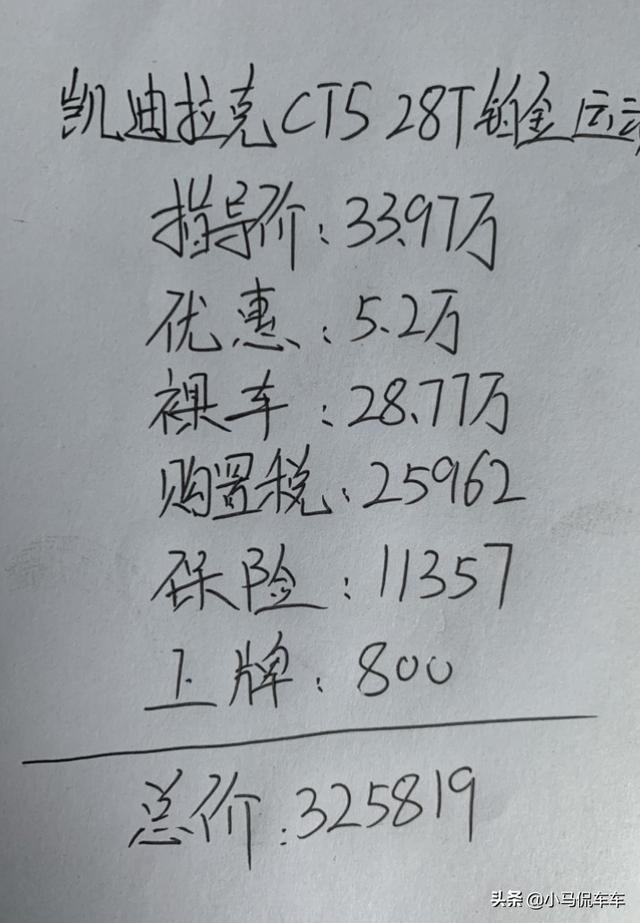 凯迪拉克CT5 28T铂金运动
指导价：33.97万
优惠：5.2万
裸车：28.77万
购置税：25962
保险：11357
上牌：800
总价：325819
头条 @小马侃车车